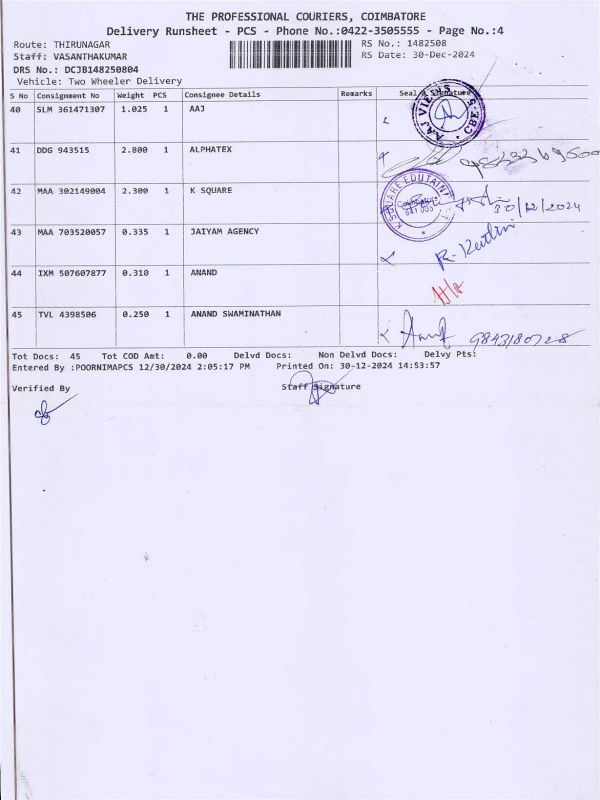 THE PROFESSIONAL COURIERS, COIMBATORE
Delivery Runsheet - PCS - Phone No.:0422-3505555 - Page No.:4
Route: THIRUNAGAR
RS No.: 1482508
Staff: VASANTHAKUMAR
RS Date: 30-Dec-2024
DRS No.: DCJB148250804
Vehicle: Two Wheeler Delivery
S No Consignment No Weight PCS Consignee Details Remarks Seal & Signature
40 SLM 361471307 1.025 1 AAJ
AAJ VIEWS CBE-5
41 DDG 943515 2.800 1 ALPHATEX
42 MAA 302149004 2.300 1 K SQUARE
K SQUARE EDUTAINT
641 005
30/12/2024
43 MAA 703520057 0.335 1 JAIYAM AGENCY
44 IXM 507607877 0.310 1 ANAND
45 TVL 4398506 0.250 1 ANAND SWAMINATHAN
9843180728
Tot Docs: 45 Tot COD Amt: 0.00 Delvd Docs: Non Delvd Docs: Delvy Pts:
Entered By :POORNIMAPCS 12/30/2024 2:05:17 PM Printed On: 30-12-2024 14:53:57
Verified By Staff Signature